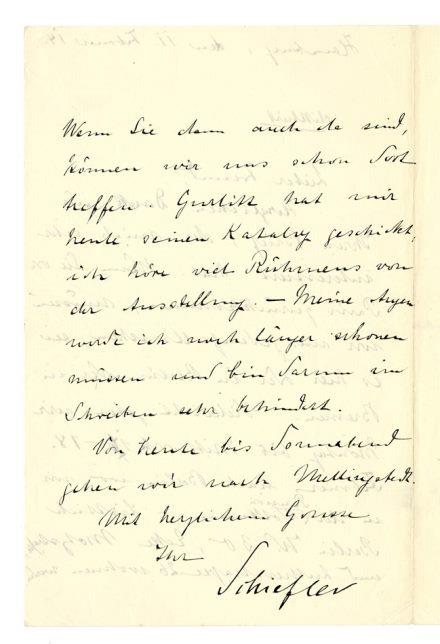 Wenn Sie dann auch da sind,
können wir uns schon dort
treffen. Gurlitt hat mir
heute seinen Katalog geschickt,
ich höre viel Rühmens von
der Ausstellung. – Meine Augen
werde ich noch länger schonen
müssen und bin darum im
Schreiben sehr behindert.
Von heute bis Sonnabend
gehen wir nach Mellingstedt.
Mit herzlichem Grusse
Ihr
Schiefler